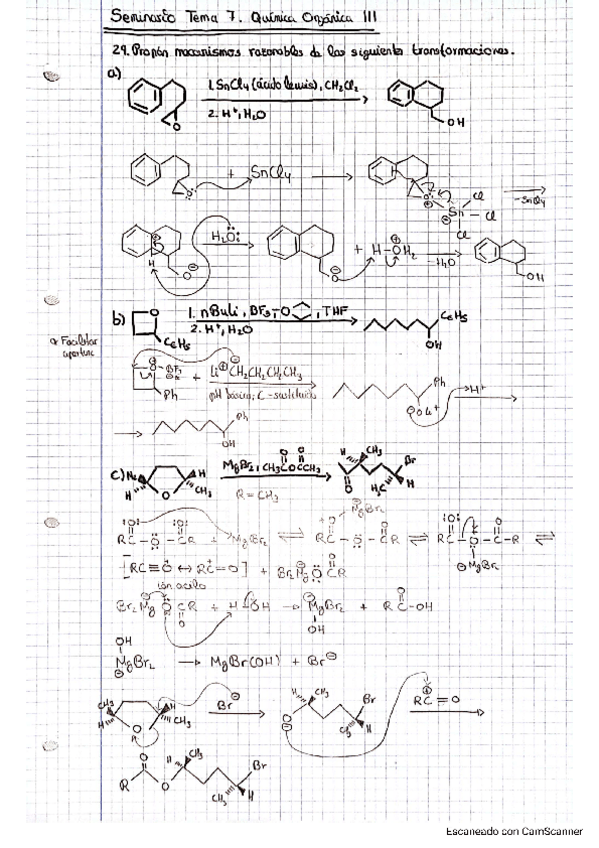 Seminario Tema 7. Química Orgánica III
29. Propón mecanismos razonables de las siguiente transformaciones.
a)
1. SnCl4 (ácido lewis), CH2Cl2
2. H+, H2O
O
OH
+ SnCl4
O
Sn
Cl
Cl
Cl
-SnCl4
H
H2O:
O⊖
+ H-OH2
-H2O
OH
b)
O
C6H5
1. nBuli, BF3, O, THF
2. H+, H2O
C6H5
OH
* Facilitar
apertura
BF3
Ph
+ Li⊕ CH2CH2CH2CH3
pH básico; C-sustituido
Ph
H+
Ph
OH
c)
H
O
H
CH3
MgBr2, CH3COCCH3
O O
R = CH3
H
CH3
Br
O
H3C
H
RC-O-CR + MgBr2 ⇌ RC-O-CR ⇌ RC-O-C-R ⇌
MgBr2
⊖MgBr2
[RC≡O ↔ RC=O] + Br2MgOCR
ión acilo
Br2Mg OCR + H-OH → MgBr2 + RC-OH
OH
OH
MgBr2 → MgBr(OH) + Br⊖
CH3
H
O
H
CH3
Br⊖
H
CH3
Br
O⊖
CH3
H
RC=O
O
R
O
H
CH3
Br
CH3
H
Escaneado con CamScanner